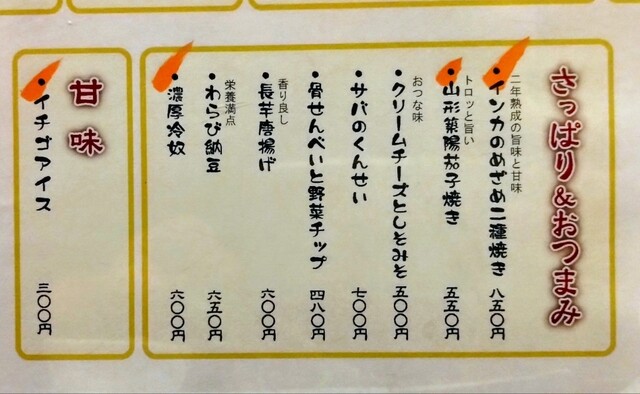 さっぱり&おつまみ
二年熟成の旨味と甘味
・インカのめざめ二種焼き 八五〇円
トロッと旨い
・山形築陽茄子焼き 五五〇円
おつな味
・クリームチーズとしそみそ 五〇〇円
・サバのくんせい 七〇〇円
・骨せんべいと野菜チップ 四八〇円
香り良し
・長芋唐揚げ 六〇〇円
栄養満点
・わらび納豆 六五〇円
・濃厚冷奴 六〇〇円
甘味
・イチゴアイス 三〇〇円